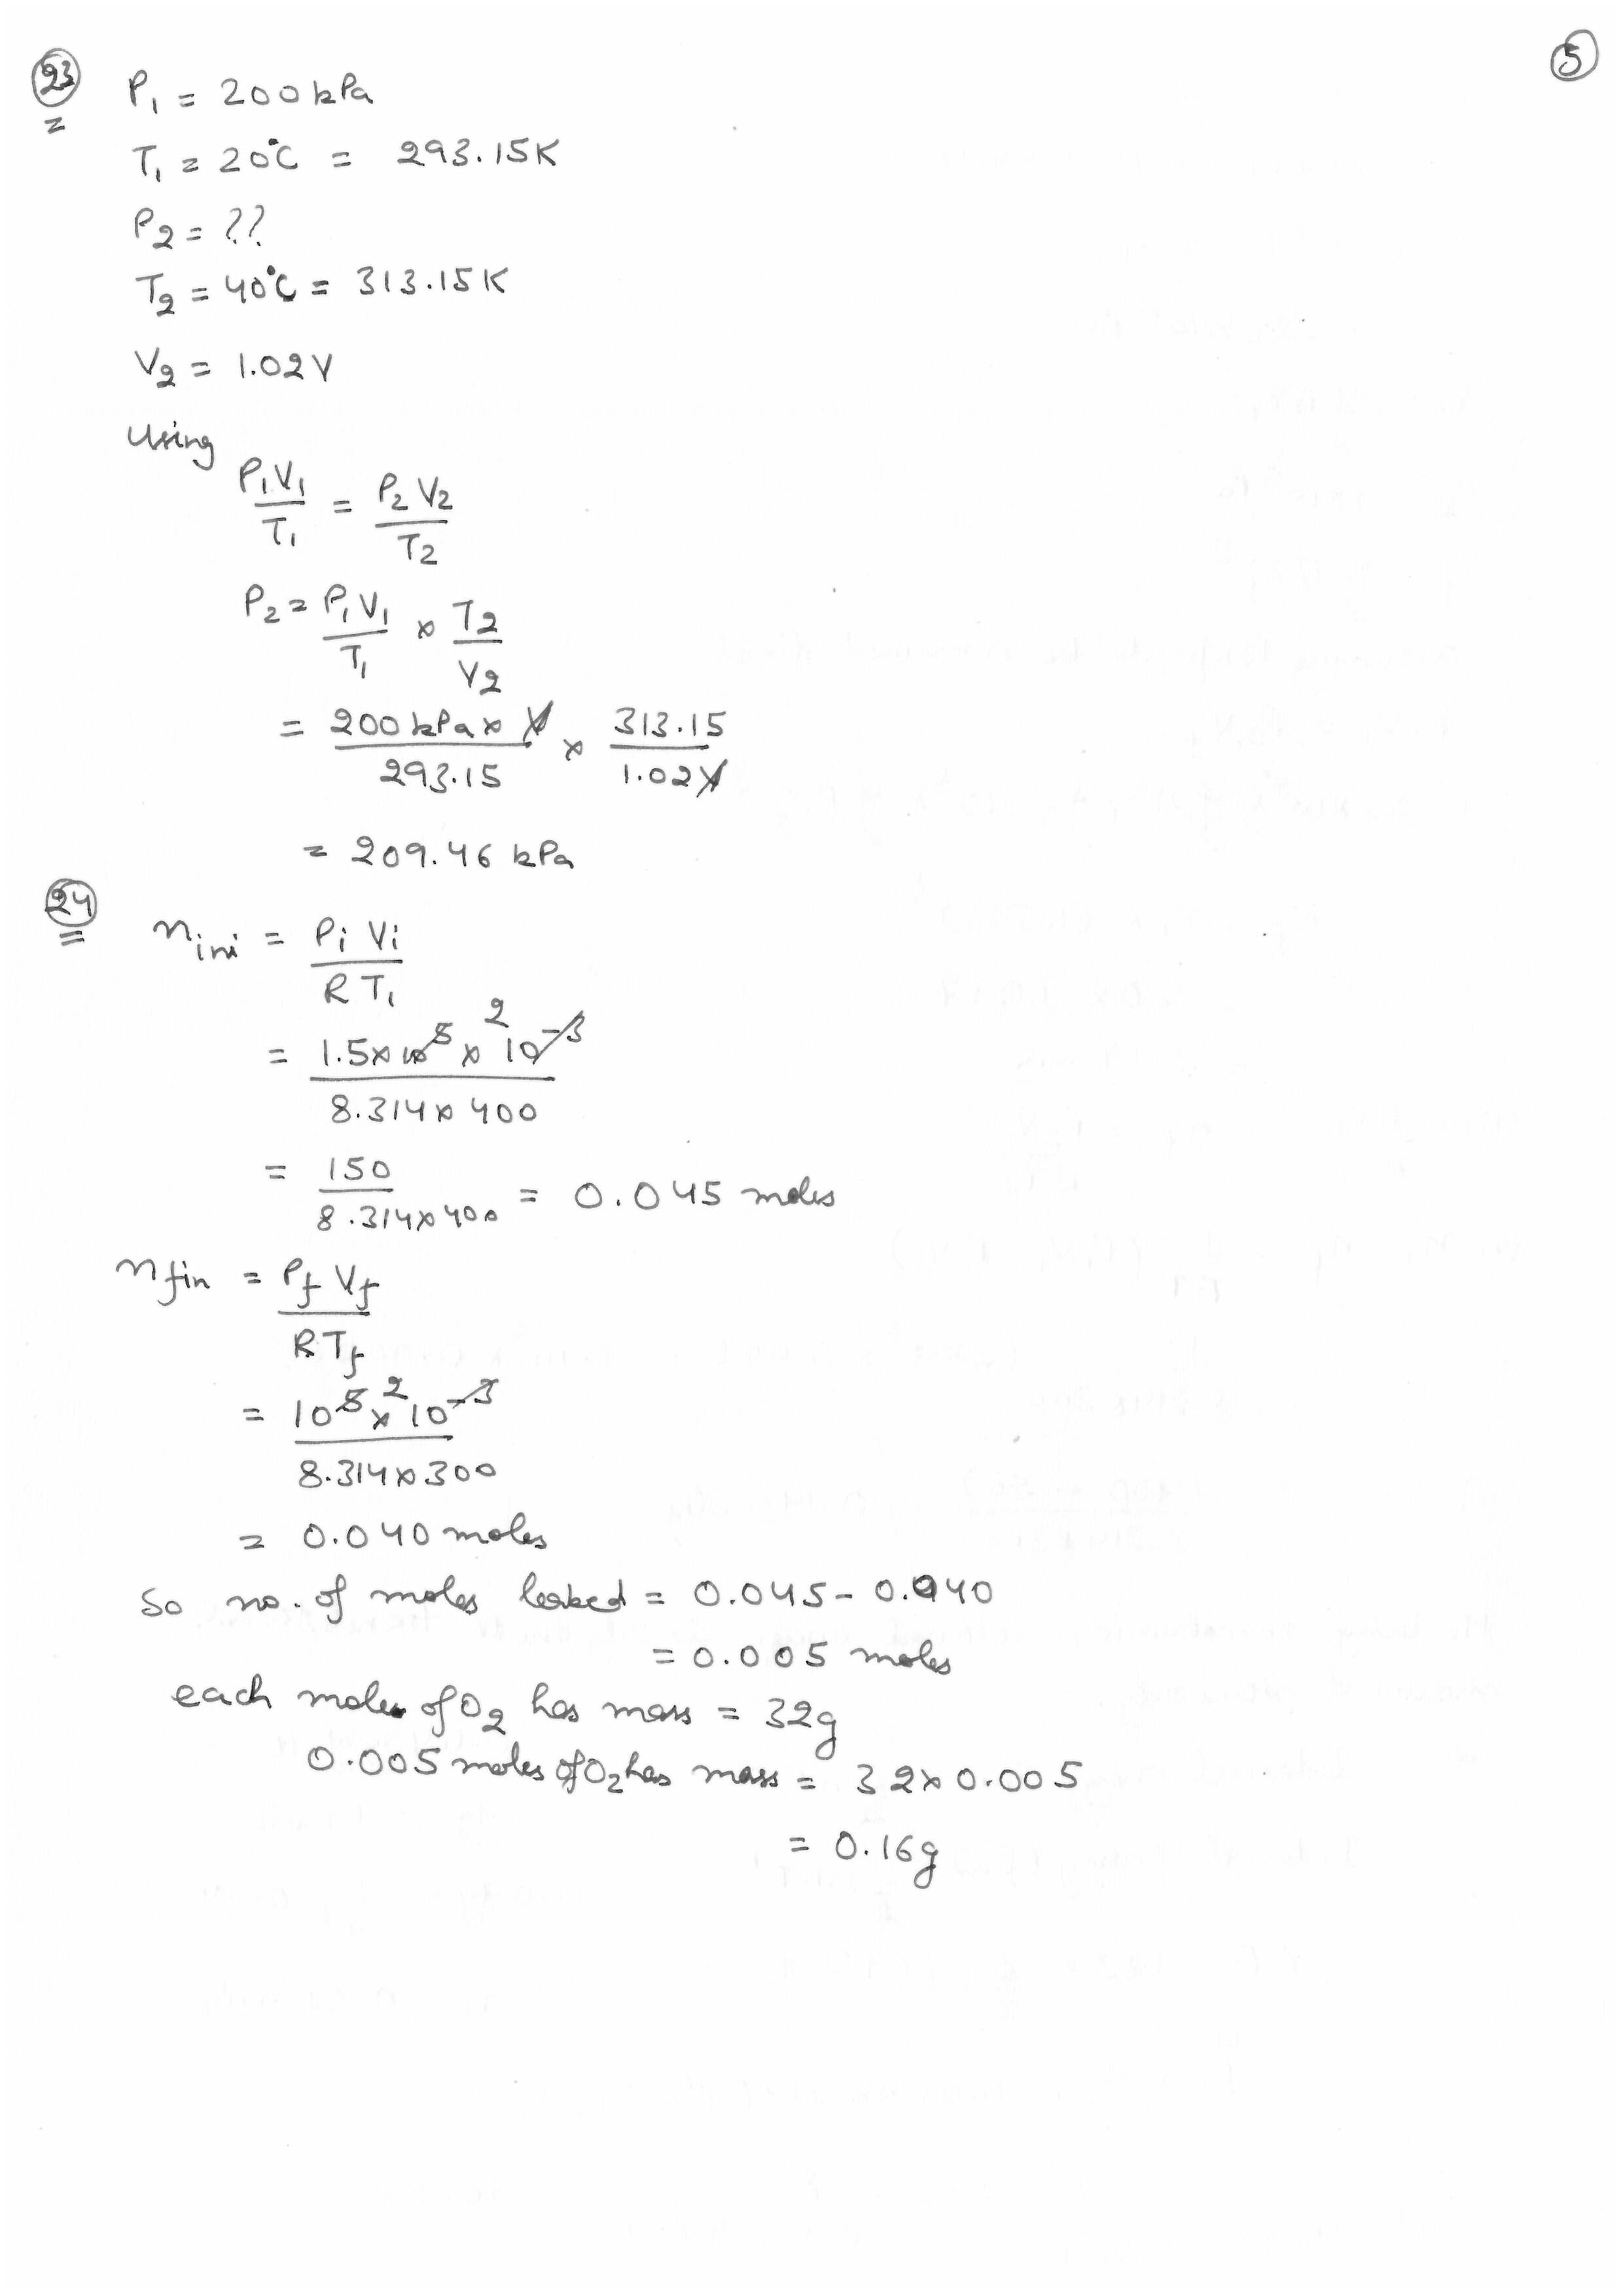 23
5
P₁ = 200 kPa
T₁ = 20°C = 293.15K
P₂ = ??
T₂ = 40°C = 313.15K
V₂ = 1.02V
Using
P₁V₁/T₁ = P₂V₂/T₂
P₂ = P₁V₁/T₁ × T₂/V₂
= 200 kPa × V/293.15 × 313.15/1.02V
= 209.46 kPa
24
n ini = Pi Vi/RT₁
= 1.5×10⁵ × 10⁻³/8.314×400 2
= 150/8.314×400 = 0.045 moles
n fin = Pf Vf/RTf
= 10⁵ × 10⁻³/8.314×300 2
= 0.040 moles
So no. of moles leaked = 0.045 - 0.040
= 0.005 moles
each mole of O₂ has mass = 32g
0.005 moles of O₂ has mass = 32 × 0.005
= 0.16g